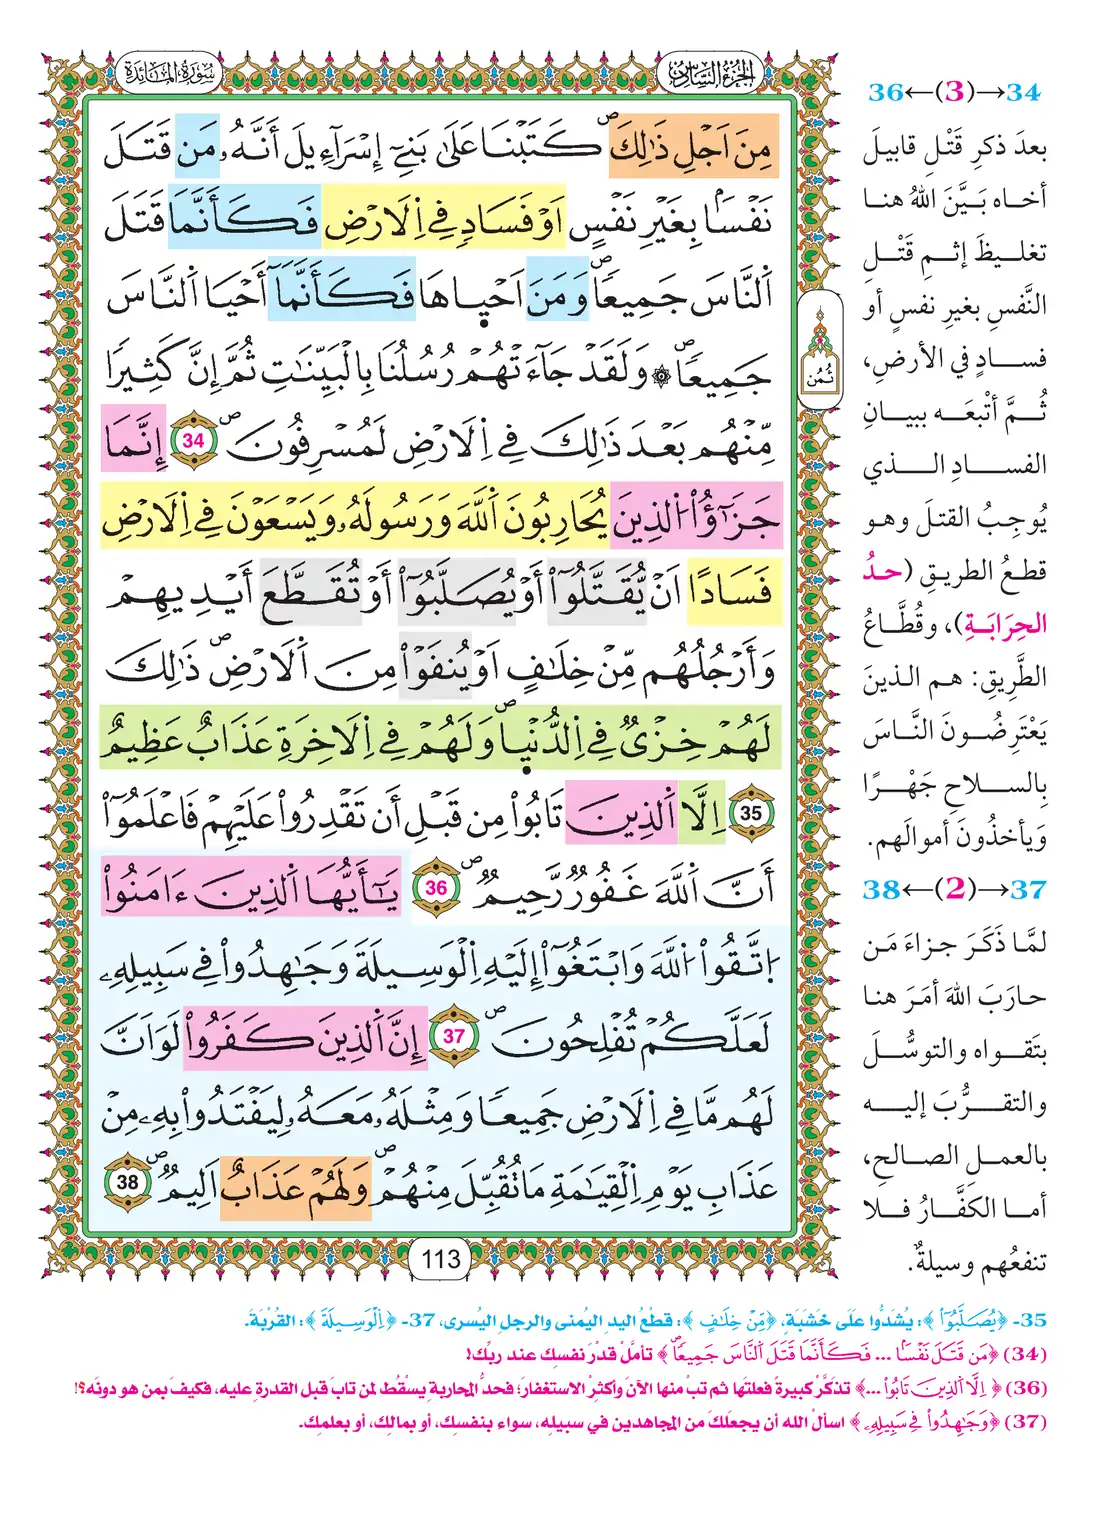 الجزء السادس
سورة المائدة
مِنَ اَجْلِ ذَٰلِكَۖ كَتَبْنَا عَلَىٰ بَنِےٓ إِسْرَآءِيلَ أَنَّهُۥ مَن قَتَلَ
نَفْساَۢ بِغَيْرِ نَفْسٍ اَوْ فَسَادٖ فِے اِ۬لَارْضِ فَكَأَنَّمَا قَتَلَ
اَ۬لنَّاسَ جَمِيعاٗۖ وَمَنَ اَحْي۪اهَا فَكَأَنَّمَآ أَحْيَا اَ۬لنَّاسَ
جَمِيعاٗۖ ۞ وَلَقَدْ جَآءَتْهُمْ رُسُلُنَا بِالْبَيِّنَٰتِ ثُمَّ إِنَّ كَثِيراٗ
مِّنْهُم بَعْدَ ذَٰلِكَ فِے اِ۬لَارْضِ لَمُسْرِفُونَۖ 34 إِنَّمَا
جَزَٰٓؤُاْ اُ۬لذِينَ يُحَارِبُونَ اَ۬للَّهَ وَرَسُولَهُۥ وَيَسْعَوْنَ فِے اِ۬لَارْضِ
فَسَاداً اَنْ يُّقَتَّلُوٓاْ أَوْ يُصَلَّبُوٓاْ أَوْ تُقَطَّعَ أَيْدِيهِمْ
وَأَرْجُلُهُم مِّنْ خِلَٰفٍ اَوْ يُنفَوْاْ مِنَ اَ۬لَارْضِۖ ذَٰلِكَ
لَهُمْ خِزْيٞ فِے اِ۬لدُّنْي۪اۖ وَلَهُمْ فِے اِ۬لَاخِرَةِ عَذَابٌ عَظِيمٌ
35 اِلَّا اَ۬لذِينَ تَابُواْ مِن قَبْلِ أَن تَقْدِرُواْ عَلَيْهِمْ فَاعْلَمُوٓاْ
أَنَّ اَ۬للَّهَ غَفُورٞ رَّحِيمٞۖ 36 يَٰٓأَيُّهَا اَ۬لذِينَ ءَامَنُواْ
اُ۪تَّقُواْ اُ۬للَّهَ وَابْتَغُوٓاْ إِلَيْهِ اِ۬لْوَسِيلَةَ وَجَٰهِدُواْ فِے سَبِيلِهِۦ
لَعَلَّكُمْ تُفْلِحُونَۖ 37 إِنَّ اَ۬لذِينَ كَفَرُواْ لَوَ اَنَّ
لَهُم مَّا فِے اِ۬لَارْضِ جَمِيعاٗ وَمِثْلَهُۥ مَعَهُۥ لِيَفْتَدُواْ بِهِۦ مِنْ
عَذَابِ يَوْمِ اِ۬لْقِيَٰمَةِ مَا تُقُبِّلَ مِنْهُمْۖ وَلَهُمْ عَذَابٌ اَلِيمٞۖ 38
ثُمُن
113
34→(3)←36
بعدَ ذكرِ قَتْلِ قابيلَ
أخاه بَيَّنَ اللهُ هنا
تغليظَ إثمِ قَتْلِ
النَّفسِ بغيرِ نفسٍ أو
فسادٍ في الأرضِ،
ثُمَّ أتْبعَه ببيانِ
الفسادِ الذي
يُوجِبُ القتلَ وهو
قطعُ الطريقِ (حدُّ
الحِرَابَةِ)، وقُطَّاعُ
الطَّرِيقِ: هم الذينَ
يَعْتَرِضُونَ النَّاسَ
بِالسلاحِ جَهْرًا
وَيأخذُونَ أموالَهم.
37→(2)←38
لمَّا ذَكَرَ جزاءَ مَن
حاربَ اللهَ أمَرَ هنا
بتَقواه والتوسُّلَ
والتقرُّبَ إليه
بالعملِ الصالحِ،
أما الكفَّارُ فلا
تنفعُهم وسيلةٌ.
35- ﴿يُصَلَّبُوٓاْ﴾: يُشدُّوا عَلَى خَشَبَةٍ، ﴿مِّنْ خِلَٰفٍ﴾: قطْعُ اليدِ اليُمنى والرجلِ اليُسرى، 37- ﴿اِ۬لْوَسِيلَةَ﴾: القُرْبَةَ.
(34) ﴿مَن قَتَلَ نَفْساَۢ ... فَكَأَنَّمَا قَتَلَ اَ۬لنَّاسَ جَمِيعاٗۖ﴾ تأمَّلْ قدْرَ نفسِك عند ربِّك!
(36) ﴿اِلَّا اَ۬لذِينَ تَابُواْ ...﴾ تذكَّرْ كبيرةً فعلتَها ثم تبْ منها الآنَ وأكثرِ الاستغفارَ؛ فحدُّ المحاربةِ يسقُطُ لمن تابَ قبل القدرةِ عليه، فكيفَ بمن هو دونَه؟!
(37) ﴿وَجَٰهِدُواْ فِے سَبِيلِهِۦ﴾ اسألْ الله أن يجعلَكَ من المجاهدين في سبيلِه، سواء بنفسِك، أو بمالِك، أو بعلمِك.